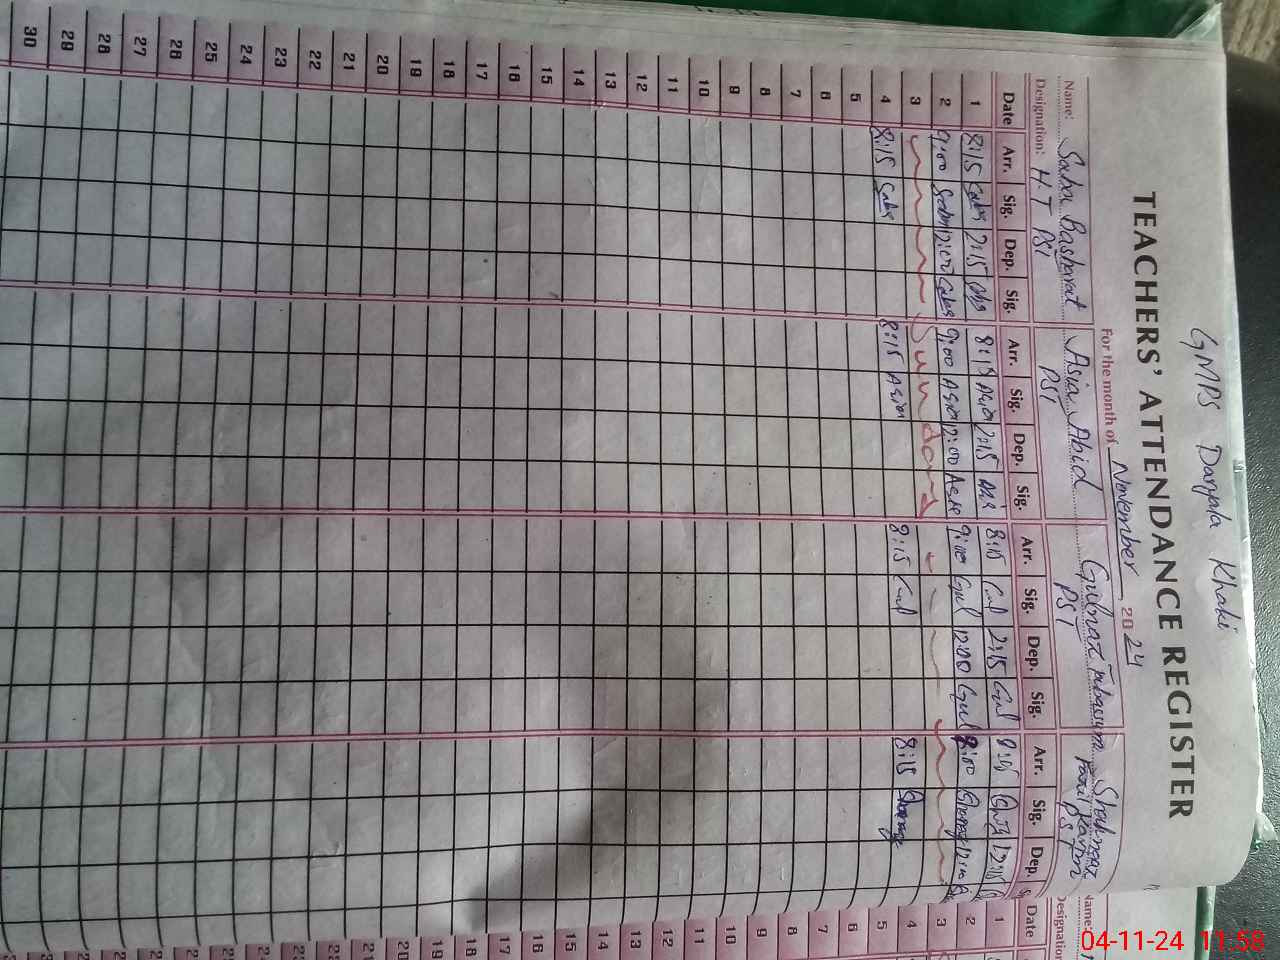 GMPS Daryala Khaki
TEACHERS' ATTENDANCE REGISTER
For the month of November 2024
Name: Saba Basharat Asia Abid Gulnaz Tabassum Shahnaz
Designation: H.T PST PST PST PST
Date Arr. Sig. Dep. Sig. Arr. Sig. Dep. Sig. Arr. Sig. Dep. Sig. Arr. Sig. Dep. Date
1 8:15 Saba 2:15 Saba 8:15 Asia 2:15 Asia 8:15 Gul 2:15 Gul 1
2 9:00 Saba 12:00 Saba 9:00 Asia 12:00 Asia 9:00 Gul 12:00 Gul 2
3 Sunday 3
4 8:15 Saba 8:15 Asia 8:15 Gul 8:15 4
5 5
6 6
7 7
8 8
9 9
10 10
11 11
12 12
13 13
14 14
15 15
16 16
17 17
18 18
19 19
20 20
21 21
22 22
23 23
24
25
26
27
28
29
30
04-11-24 11:58